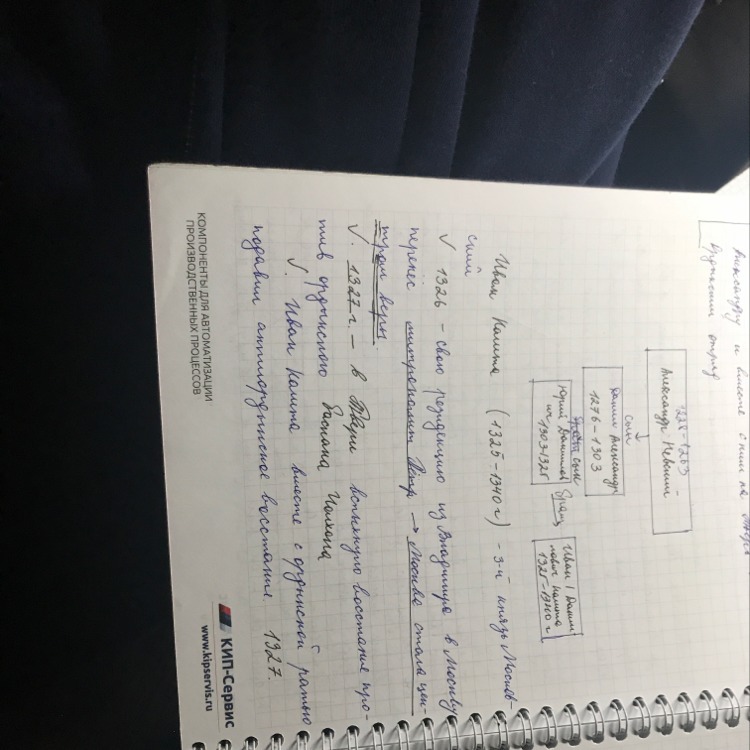 Александру и вместе с ним на
ордынский отряд
1228-1263 -
Александр Невский
сын
Даниил Александр
1276-1303
сын
Юрий Данилов
ич 1303-1325
брат
Иван I Данил
ович Калита
1325-1340 г
Иван Калита (1325-1340 г) - 3-й князь Москов-
ский
√ 1326 - свою резиденцию из Владимира в Москву
перенёс митрополит Пётр → Москва стала цен-
тром веры.
√. 1327 г. - в Твери вспыхнуло восстание про-
тив ордынского баскака Чолхана
√. Иван Калита вместе с ордынской ратью
подавил антиордынское восстание. 1327.
КОМПОНЕНТЫ ДЛЯ АВТОМАТИЗАЦИИ
ПРОИЗВОДСТВЕННЫХ ПРОЦЕССОВ
КИП-Сервис
www.kipservis.ru